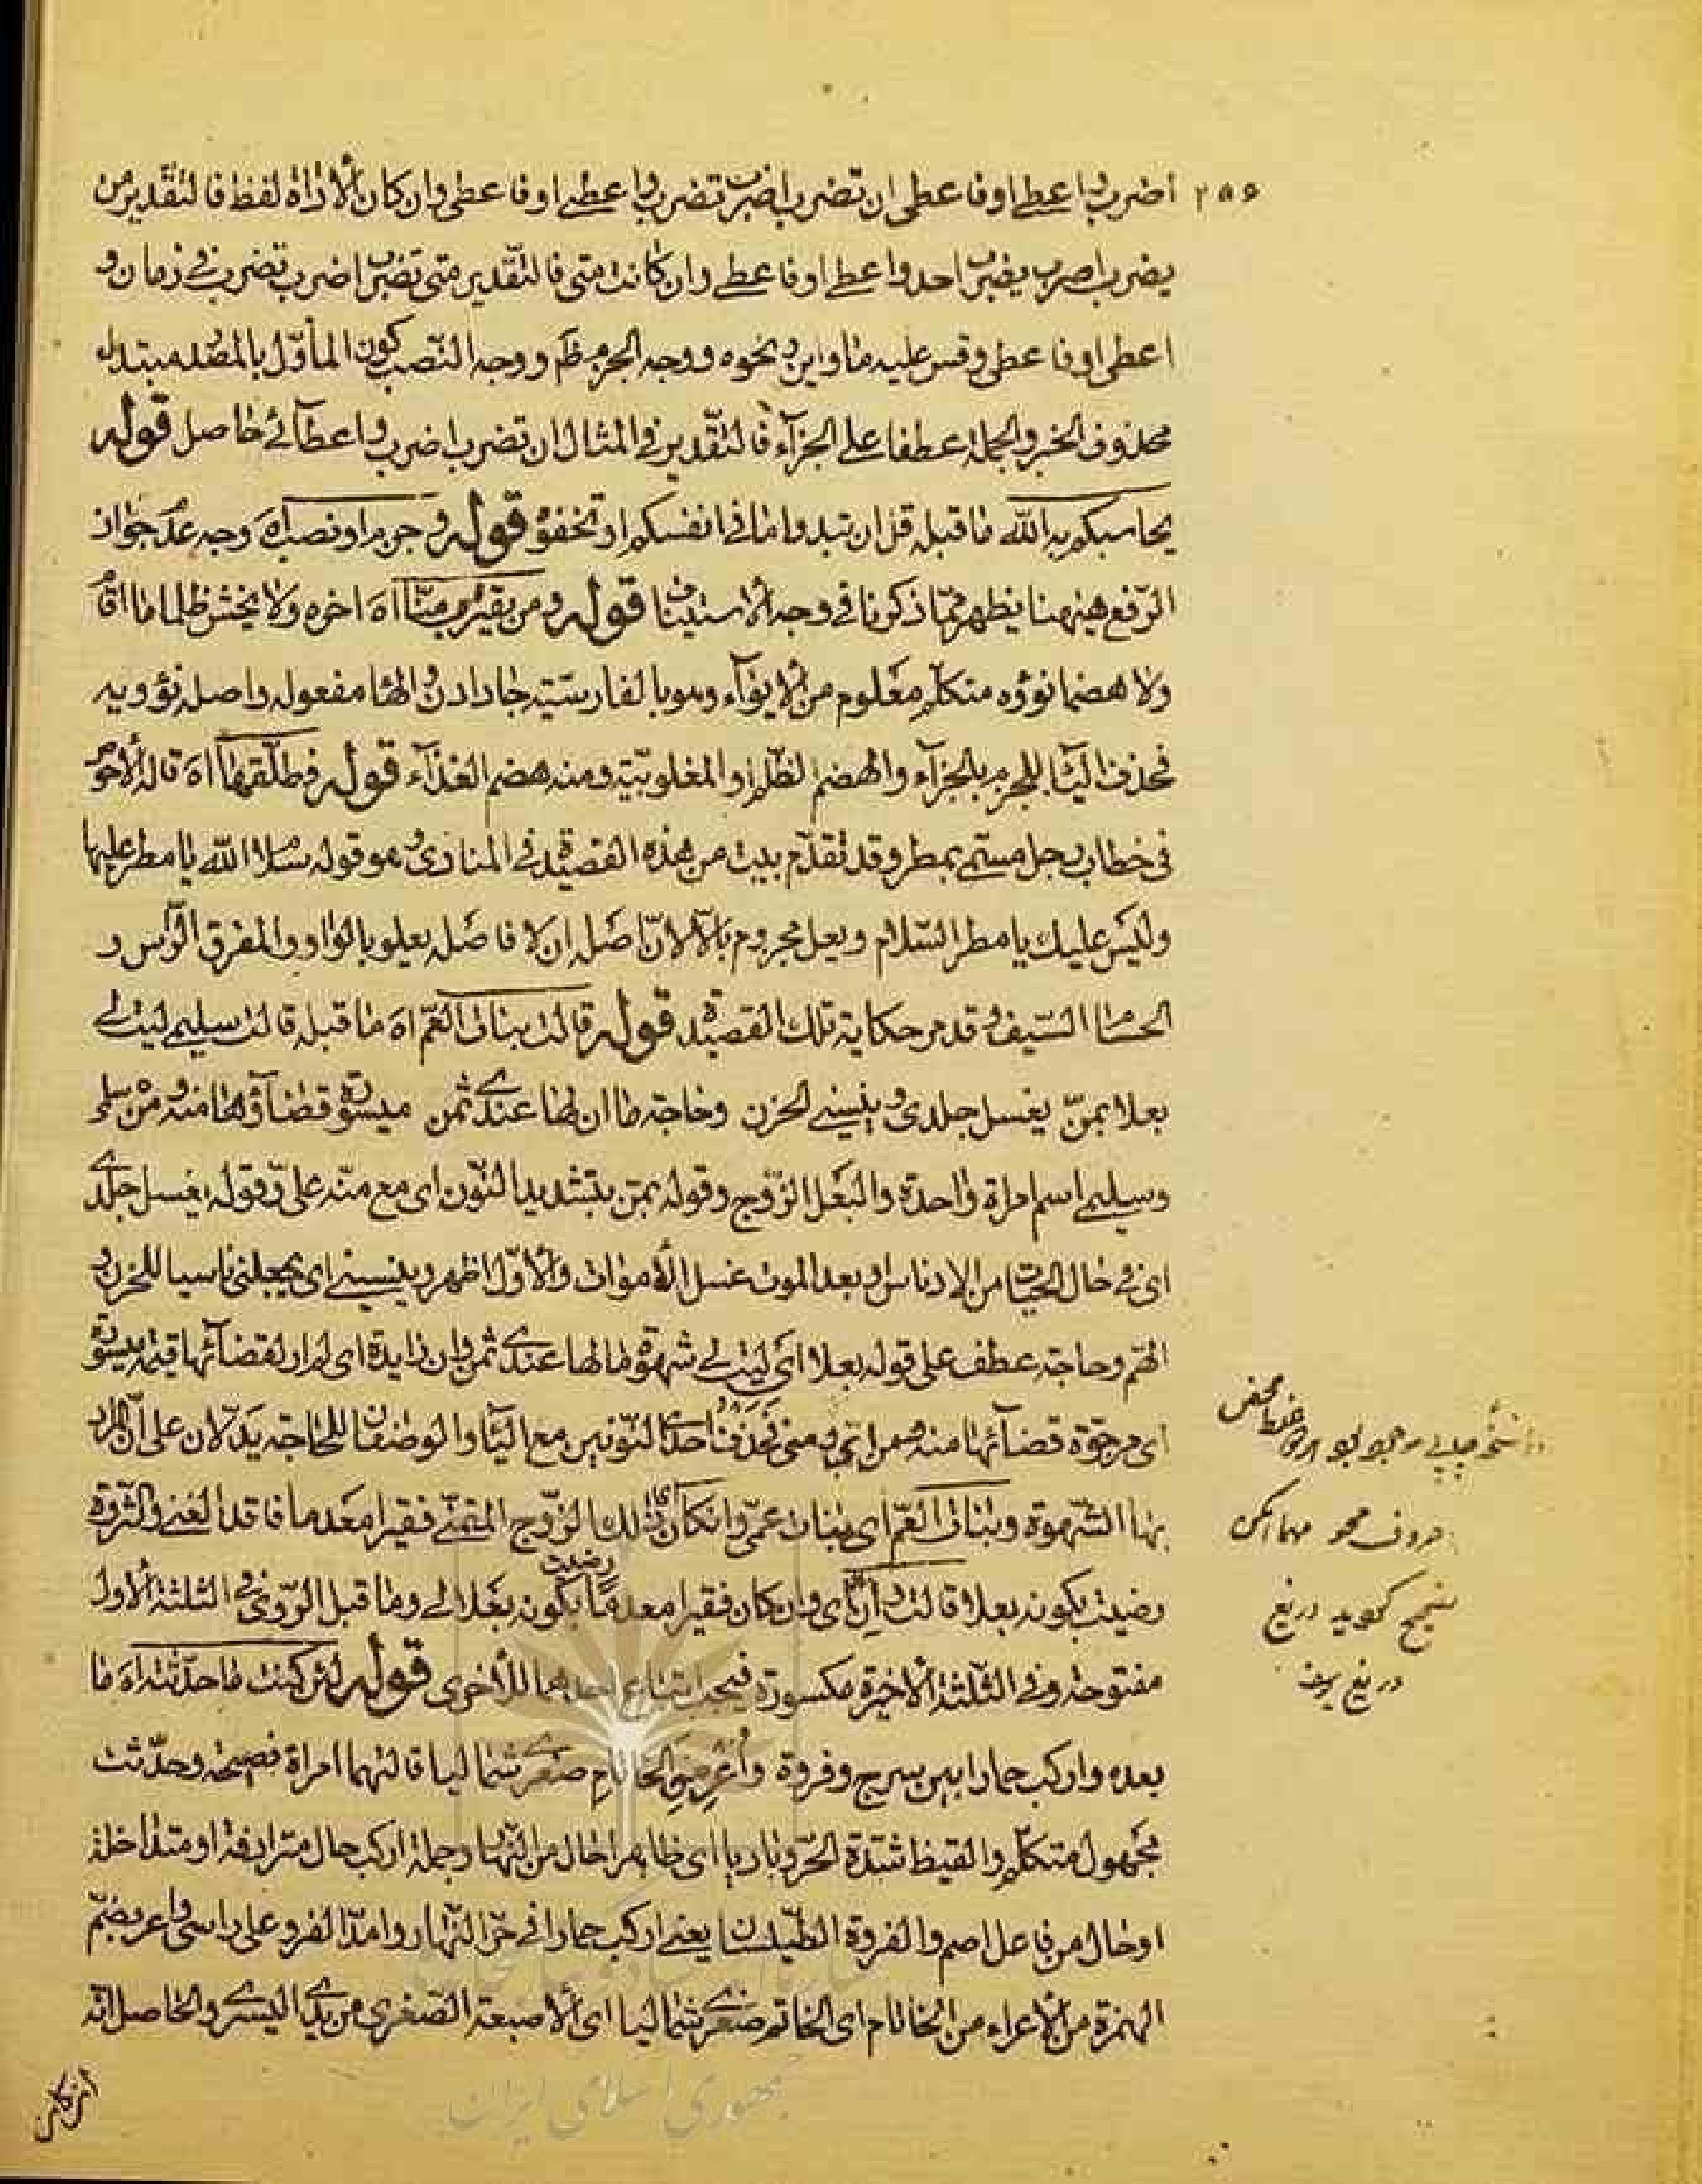 ٢٥٦ اضرب واعطى اوفاعطى ان تضرب اضرب تضرب واعطى اوفاعطى وان كان الاداة لفظ فالتقدير من
يضرب اضرب يضرب احد واعطى اوفاعطى وان كانت متى فالتقدير متى تضرب اضرب تضرب فى زمان و
اعطى اوفاعطى وقس عليه ما واين ونحوه ووجه الجزم ظم ووجه النصب كون المأول بالمصدر مبتداء
محذوف الخبر والجملة عطفا على الجزآء فالتقدير فى المثال ان تضرب اضرب واعطآئى حاصل قوله
يحاسبكم به الله ما قبله قل ان تبدوا ما فى انفسكم او تخفوه قوله وجزم او نصب اه وجه عدم جواز
الرفع هيهنا يظهر مما ذكرنا فى وجه الاستيناف قوله ومن يقترب منا اه اخره ولا يخش ظلما ما اقام
ولا هضما نؤوه متكلم معلوم من الايوآء وهو بالفارسية جا دادن والها مفعوله واصله نؤويه
فحذف اليآ للجزم بالجزآء والهضم الظلم والمغلوبية ومنه هضم الغذآء قوله فطلقها اه قاله الاحوص
فى خطاب رجل مسمى بمطر وقد تقدم بيت من هذه القصيدة فى المنادى وهو قوله سلام الله يا مطر عليها
وليس عليك يا مطر السلام ويعل مجزوم بالا لان اصله ان لا فاصله يعلو بالواو والمفرق الرأس و
الحسام السيف وقد مر حكاية تلك القصيدة قوله قالت بنات العم اه ما قبله قالت سليمى ليت لى
بعلا بمن يغسل جلدى وينسينى الحزن وحاجة ما ان لها عندى ثمن ميسورة قضآؤها منه ومن سلمى
وسليمى اسم امراة واحدة والبعل الزوج وقوله بمن بتشديد النون اى مع منه على وقوله يغسل جلدى
اى فى حال الحيات من الادناس وبعد الموت غسل الاموات والاول اظهر وينسينى اى يجعلنى ناسيا للحزن و
الهم وحاجة عطف على قوله بعلا اى ليت لى شهوة ما لها عندى ثمن وان زايدة اى لم ار لقضآئها قيمة ميسورة
اى مرجوة قضآئها منه ومن اى ومنى فحذف احدى النونين مع اليآ والوصفان للحاجة يدلان على ان المراد
بها الشهوة وبنات العم اى بنات عمى وان كان اى ذلك الزوج المتمنى فقيرا معدما فاقد الغنى والثروة
رضيت بكونه بعلا قالت وان اى وان كان فقيرا معدما رضيت بكونه بعلا لى وما قبل الروى فى الثلثة الاول
مفتوحة وفى الثلثة الاخيرة مكسورة فيجب اتباع احدهما للاخرى قوله لئن كنت ما حدثته اه ما
بعده واركب حمارا بين سرج وفروة وأعر من الخاتام صغرى شماليا قالتهما امراة فصيحة وحدثت
مجهول متكلم والقيظ شدة الحر وباديا اى ظاهرا حال من النهار وجملة اركب حال مترادفة او متداخلة
او حال من فاعل اصم والفروة الطيلسان يعنى اركب حمارا فى حر النهار وامد الفرو على راسى واعر بضم
الهمزة من الاعراء من الخاتام اى الخاتم صغرى شماليا اى الاصبعة الصغرى من يدى اليسرى والحاصل انه
ان كان
حروف محو
دريغ
جمهورى اسلامى ايران